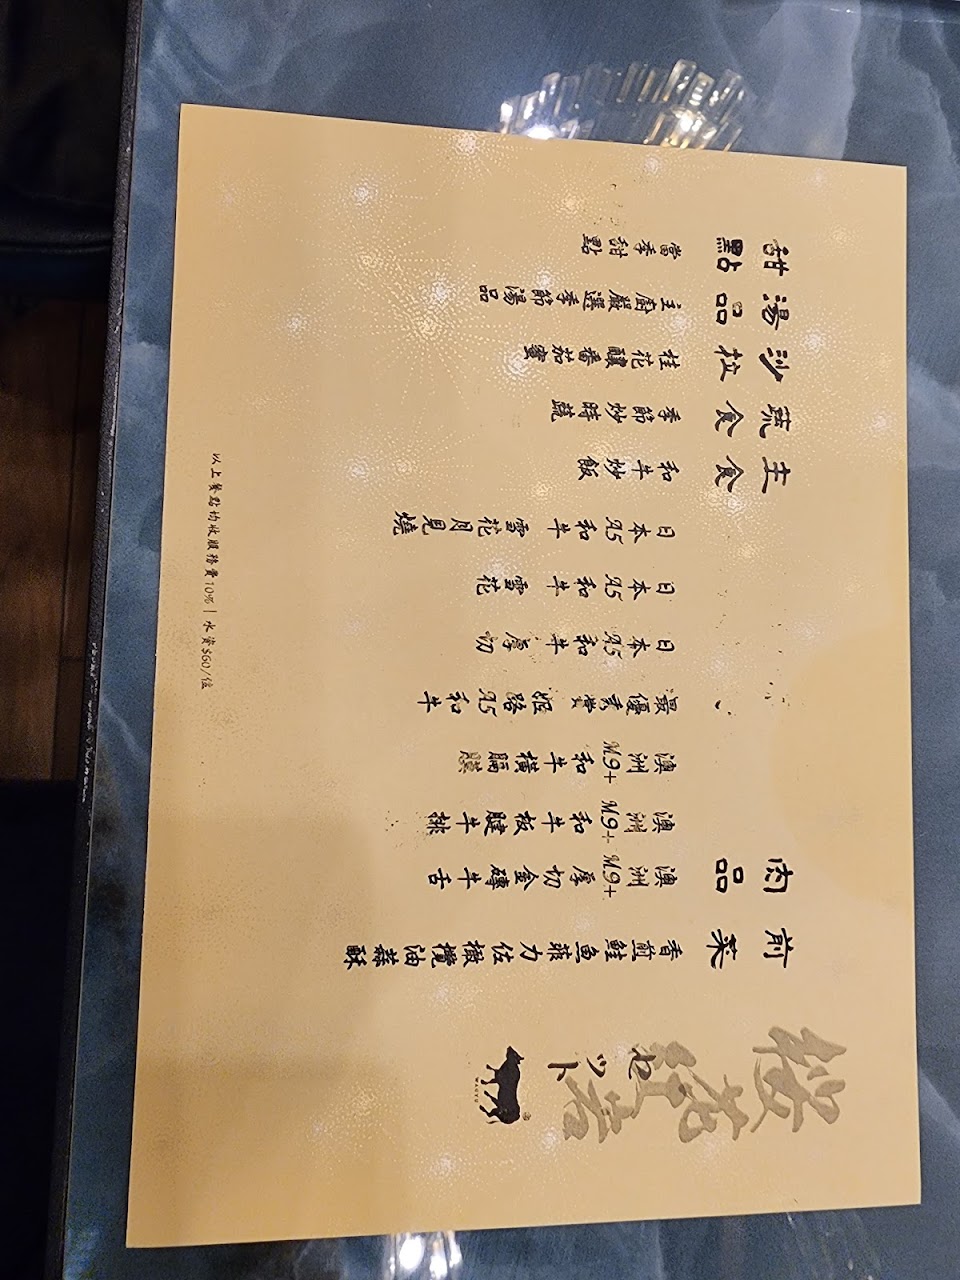 セット
WAGYU
前菜
香煎鮭魚菲力佐橄欖油蒜酥
肉品
澳洲M9+厚切金磚牛舌
澳洲M9+和牛板腱牛排
澳洲M9+和牛橫膈膜
最優秀賞姬路A5和牛
日本A5和牛厚切
日本A5和牛雪花
日本A5和牛雪花月見燒
主食
和牛炒飯
蔬食
季節炒時蔬
沙拉
桂花釀番茄蜜
湯品
主廚嚴選季節湯品
甜點
當季甜點
以上餐點均收服務費10%|水資$60/位